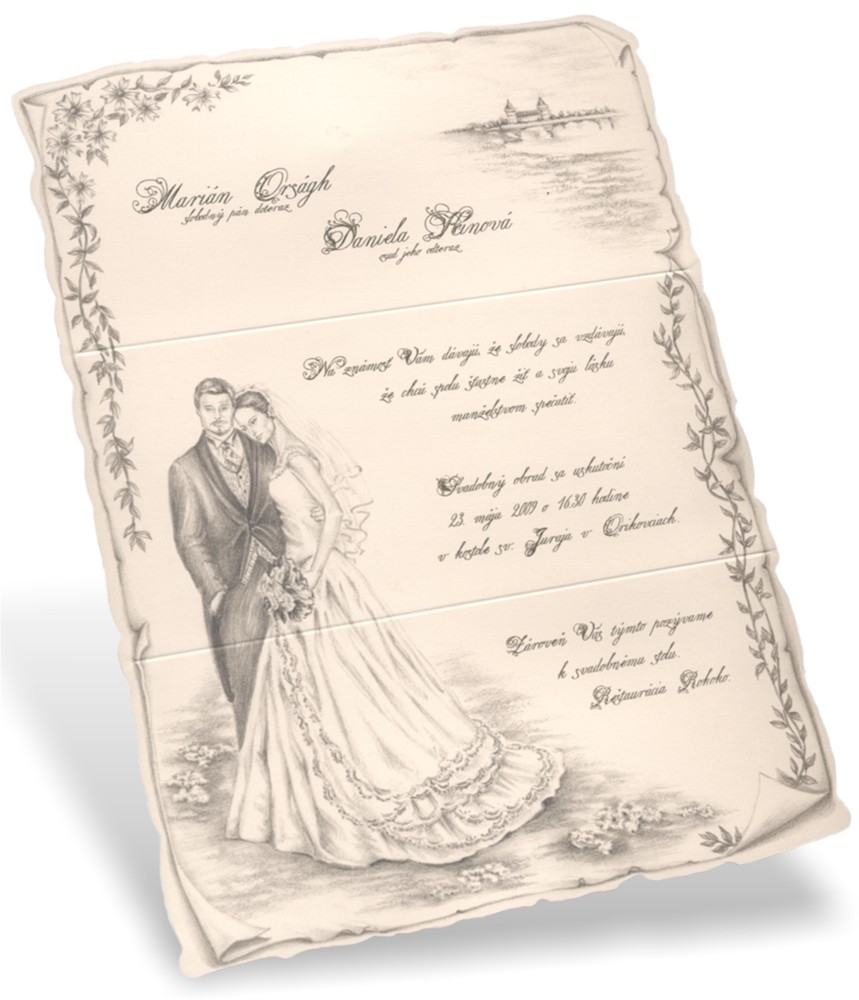 Marián Orságh
slobodný pán doteraz
Daniela
cud jeho odteraz
Na známosť Vám dávajú, že slobody sa vzdávajú,
že chcú spolu šťastne žiť a svoju lásku
manželstvom spečatiť.
Svadobný obrad sa uskutoční
23. mája 2009 o 16.30 hodine
v kostole sv. Juraja v Orikovciach.
Zároveň Vás týmto pozývame
k svadobnému stolu.
Reštaurácia Rokoko.